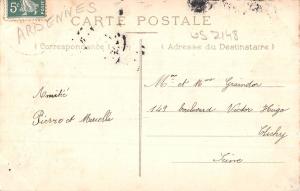 5c
ARDENNES
CARTE POSTALE
US 2148
(Correspondance)
(Adresse du Destinataire)
Mr et Mme Graindor
149 boulevard Victor Hugo
Clichy
Seine
Amitié
Pierro et Marcelle